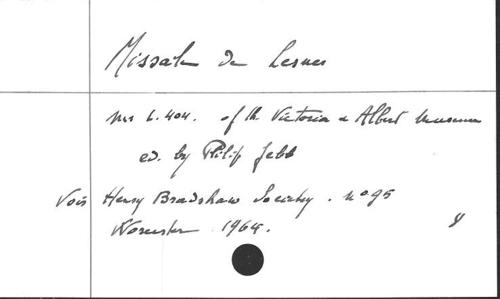 Missale de Lesnes
MS L.404. of the Victoria & Albert Museum
ed. by Philip Jebb
Voir Henry Bradshaw Society. no 95
Worcester 1964.